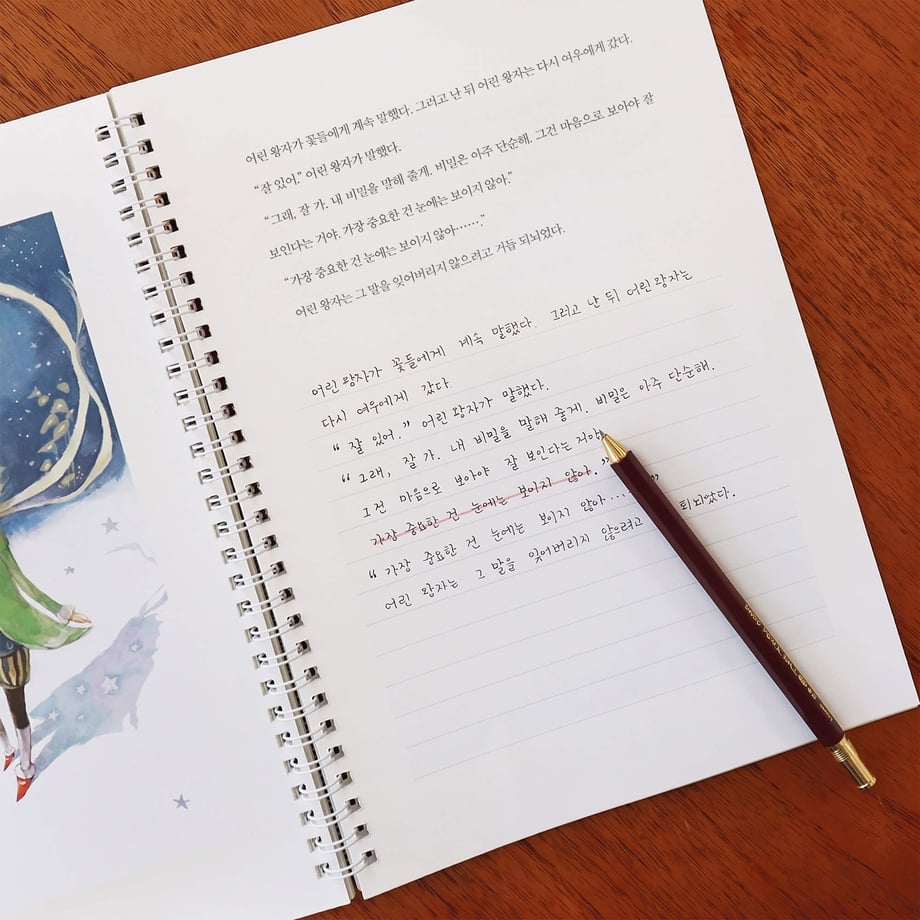 어린 왕자가 꽃들에게 계속 말했다. 그러고 난 뒤 어린 왕자는 다시 여우에게 갔다.
“잘 있어.” 어린 왕자가 말했다.
“그래, 잘 가. 내 비밀을 말해 줄게. 비밀은 아주 단순해. 그건 마음으로 보아야 잘
보인다는 거야. 가장 중요한 건 눈에는 보이지 않아.”
“가장 중요한 건 눈에는 보이지 않아……”
어린 왕자는 그 말을 잊어버리지 않으려고 거듭 되뇌었다.
어린 왕자가 꽃들에게 계속 말했다. 그러고 난 뒤 어린 왕자는
다시 여우에게 갔다.
“잘 있어.” 어린 왕자가 말했다.
“그래, 잘 가. 내 비밀을 말해 줄게. 비밀은 아주 단순해.
그건 마음으로 보아야 잘 보인다는 거야
가장 중요한 건 눈에는 보이지 않아.”
“가장 중요한 건 눈에는 보이지 않아…. ”
어린 왕자는 그 말을 잊어버리지 않으려고 되뇌었다.